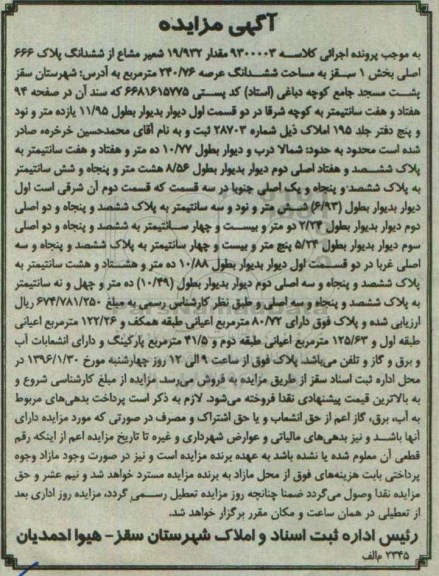 آگهی مزایده
به موجب پرونده اجرائی کلاسه ۹۳۰۰۰۰۳ مقدار ۱۹/۹۳۲ شعیر مشاع از ششدانگ پلاک ۶۶۶
اصلی بخش ۱ سقز به مساحت ششدانگ عرصه ۲۴۰/۷۶ مترمربع به آدرس: شهرستان سقز
پشت مسجد جامع کوچه دباغی (استاد) کد پستی ۶۶۸۱۶۱۵۷۷۵ که سند آن در صفحه ۹۴
هفتاد و هفت سانتیمتر به کوچه شرقا در دو قسمت اول دیوار بدیوار بطول ۱۱/۹۵ یازده متر و نود
و پنج دفتر جلد ۱۹۵ املاک ذیل شماره ۲۸۷۰۳ ثبت و به نام آقای محمدحسین خرخره، صادر
شده است محدود به حدود: شمالا درب و دیوار بطول ۱۰/۷۷ ده متر و هفتاد و هفت سانتیمتر به
پلاک ششصد و هفتاد اصلی دوم دیوار بدیوار بطول ۸/۵۶ هشت متر و پنجاه و شش سانتیمتر
به پلاک ششصد و پنجاه و یک اصلی جنوبا در سه قسمت که قسمت دوم آن شرقی است اول
دیوار بدیوار بطول (۶/۹۳) شش متر و نود و سه سانتیمتر به پلاک ششصد و پنجاه و دو اصلی
دوم دیوار بدیوار بطول ۲/۲۴ دو متر و بیست و چهار سانتیمتر به ششصد و پنجاه و دو اصلی
سوم دیوار بدیوار بطول ۵/۲۴ پنج متر و بیست و چهار سانتیمتر به پلاک ششصد و پنجاه و سه
اصلی غربا در دو قسمت اول دیوار بدیوار بطول ۱۰/۸۸ ده متر و هشتاد و هشت سانتیمتر به
پلاک ششصد و پنجاه و سه اصلی دوم دیوار بدیوار بطول (۱۰/۴۹) ده متر و چهل و نه سانتیمتر
به پلاک ششصد و پنجاه و سه اصلی و طبق نظر کارشناس رسمی به مبلغ ۶۷۴/۷۸۱/۲۵۰ ریال
ارزیابی شده و پلاک فوق دارای ۸۰/۷۲ مترمربع اعیانی طبقه همکف و ۱۲۲/۲۶ مترمربع اعیانی
طبقه اول و ۱۲۵/۶۳ مترمربع اعیانی طبقه دوم و ۴۱/۵ مترمربع پارکینگ و دارای انشعابات آب
و برق و گاز و تلفن می‌باشد. پلاک فوق از ساعت ۹ الی ۱۲ روز چهارشنبه مورخ ۱۳۹۶/۱/۳۰ در
محل اداره ثبت اسناد سقز از طریق مزایده به فروش می‌رسد. مزایده از مبلغ کارشناسی شروع و
به بالاترین قیمت پیشنهادی نقدا فروخته می‌شود. لازم به ذکر است پرداخت بدهی‌های مربوط
به آب، برق، گاز اعم از حق انشعاب و یا حق اشتراک و مصرف در صورتی که مورد مزایده دارای
آنها باشد و نیز بدهی‌های مالیاتی و عوارض شهرداری و غیره تا تاریخ مزایده اعم از اینکه رقم
قطعی آن معلوم شده یا نشده باشد به عهده برنده مزایده است و نیز در صورت وجود مازاد وجوه
پرداختی بابت هزینه‌های فوق از محل مازاد به برنده مزایده مسترد خواهد شد و نیم عشر و حق
مزایده نقدا وصول می‌گردد ضمنا چنانچه روز مزایده تعطیل رسمی گردد، مزایده روز اداری بعد
از تعطیلی در همان ساعت و مکان مقرر برگزار خواهد شد.
رئیس اداره ثبت اسناد و املاک شهرستان سقز- هیوا احمدیان
۲۳۴۵ م‌الف